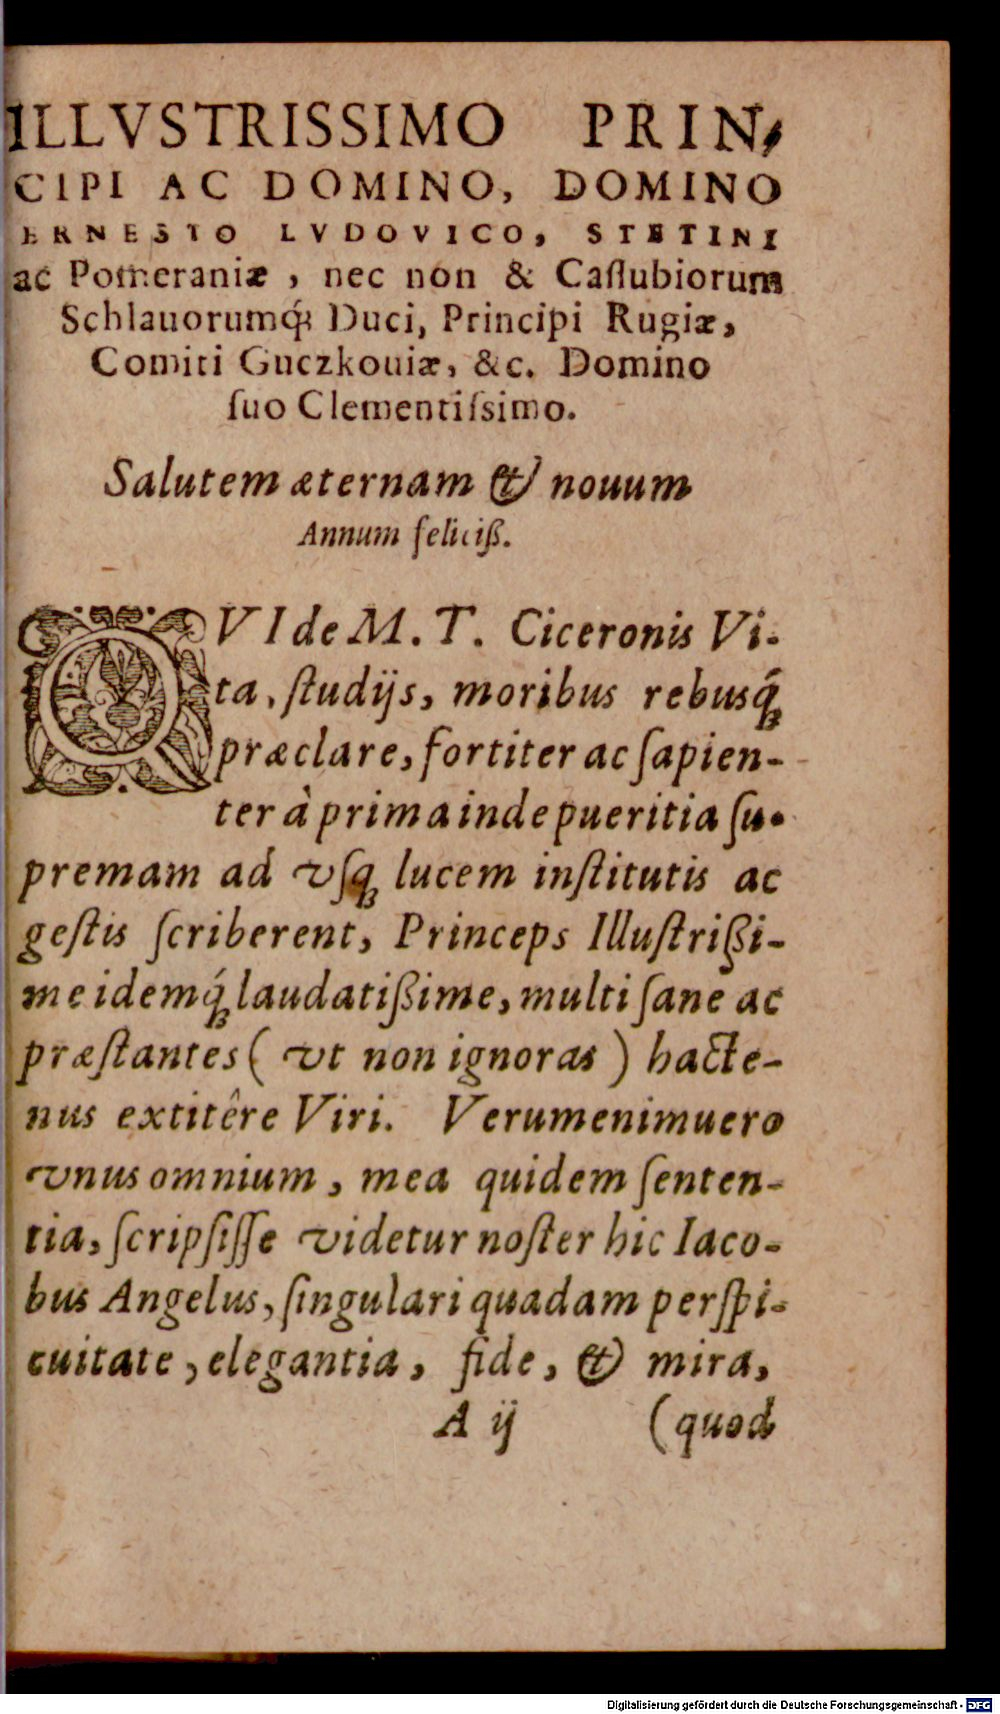 ILLVSTRISSIMO PRIN-
CIPI AC DOMINO, DOMINO
ERNESTO LVDOVICO, STETINI
ac Pomeraniæ, nec non & Caſſubiorum
Schlauorumq́; Duci, Principi Rugiæ,
Comiti Guczkouiæ, &c. Domino
ſuo Clementiſsimo.
Salutem æternam & nouum
Annum feliciß.
QVI de M. T. Ciceronis Vi-
ta, ſtudijs, moribus rebusq́;
præclare, fortiter ac ſapien-
ter à prima inde pueritia ſu-
premam ad vſq; lucem inſtitutis ac
geſtis ſcriberent, Princeps Illuſtrißi-
me idemq́; laudatißime, multi ſane ac
præſtantes ( vt non ignoras ) hacte-
nus extitêre Viri. Verumenimuero
vnus omnium, mea quidem ſenten-
tia, ſcripſiſſe videtur noſter hic Iaco-
bus Angelus, ſingulari quadam perſpi-
cuitate, elegantia, fide, & mira,
A ij (quod
Digitalisierung gefördert durch die Deutsche Forschungsgemeinschaft - DFG